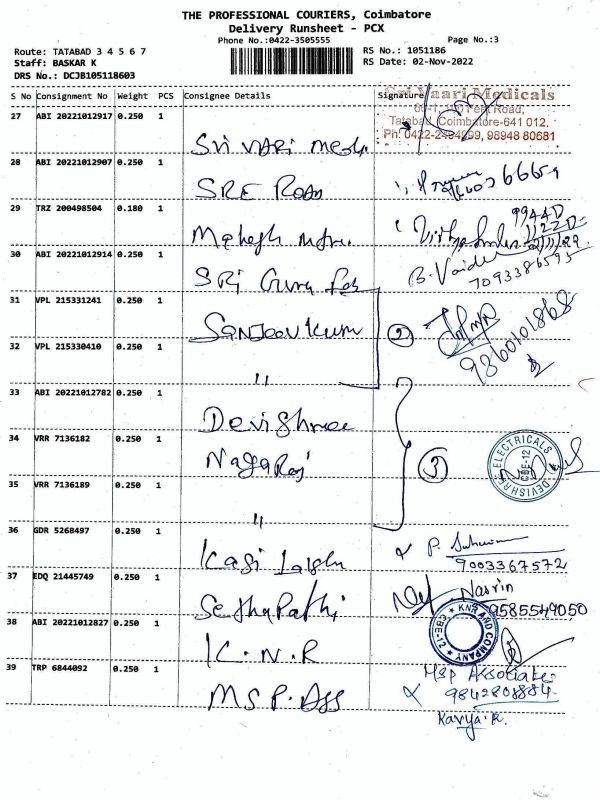 THE PROFESSIONAL COURIERS, Coimbatore
Delivery Runsheet - PCX
Phone No.:0422-3505555
Page No.:3
Route: TATABAD 3 4 5 6 7
RS No.: 1051186
Staff: BASKAR K
RS Date: 02-Nov-2022
DRS No.: DCJB105118603
S No Consignment No Weight PCS Consignee Details Signature
Sri Vaari Medicals
Road,
Tatabad, Coimbatore-641 012.
Ph: 0422-2494299, 98948 80681
27 ABI 20221012917 0.250 1
Sri VARi
28 ABI 20221012907 0.250 1
SRE
29 TRZ 200498504 0.180 1
Mahesh
30 ABI 20221012914 0.250 1
SRi Guru
B. Vaide
7093386595
31 VPL 215331241 0.250 1
Sanjeev Kum 2
9860101868
32 VPL 215330410 0.250 1
"
33 ABI 20221012782 0.250 1
Devishree
34 VRR 7136182 0.250 1
Nagaraj 3
DEVISHREE ELECTRICALS
CBE-12
35 VRR 7136189 0.250 1
"
36 GDR 5268497 0.250 1
Kasi
P.
9003367572
37 EDQ 21445749 0.250 1
Sethupathi
Nasrin
9585549050
38 ABI 20221012827 0.250 1
K.N.R
KNR AND COMPANY
CBE-12
39 TRP 6844092 0.250 1
M.S.P. Ass
MSP Associates
9842808884
Kavya.R.